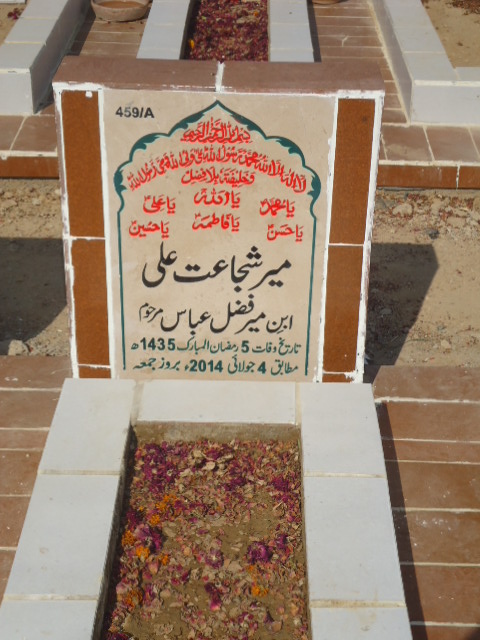 459/A
بسم اللہ الرحمن الرحیم
لا الہ الا اللہ محمد رسول اللہ علی ولی اللہ وصی رسول اللہ
وخلیفتہ بلا فصل
یا اللہ
یا محمد یا فاطمہ یا علی
یا حسن یا حسین
میر شجاعت علی
ابن میر فضل عباس مرحوم
تاریخ وفات 5 رمضان المبارک 1435ھ
مطابق 4 جولائی 2014ء بروز جمعہ